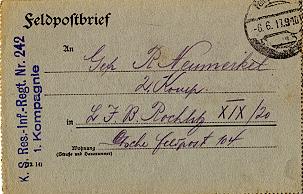 Feldpostbrief
-6.6.17.9-10
K. S. Res.-Inf.-Regt. Nr. 242
1. Kompagnie
An
Gefr R. Neumerkel
2. Komp.
in L. F. B. Rochlitz XIX/20
Feldpost 104
Wohnung
(Straße und Hausnummer)